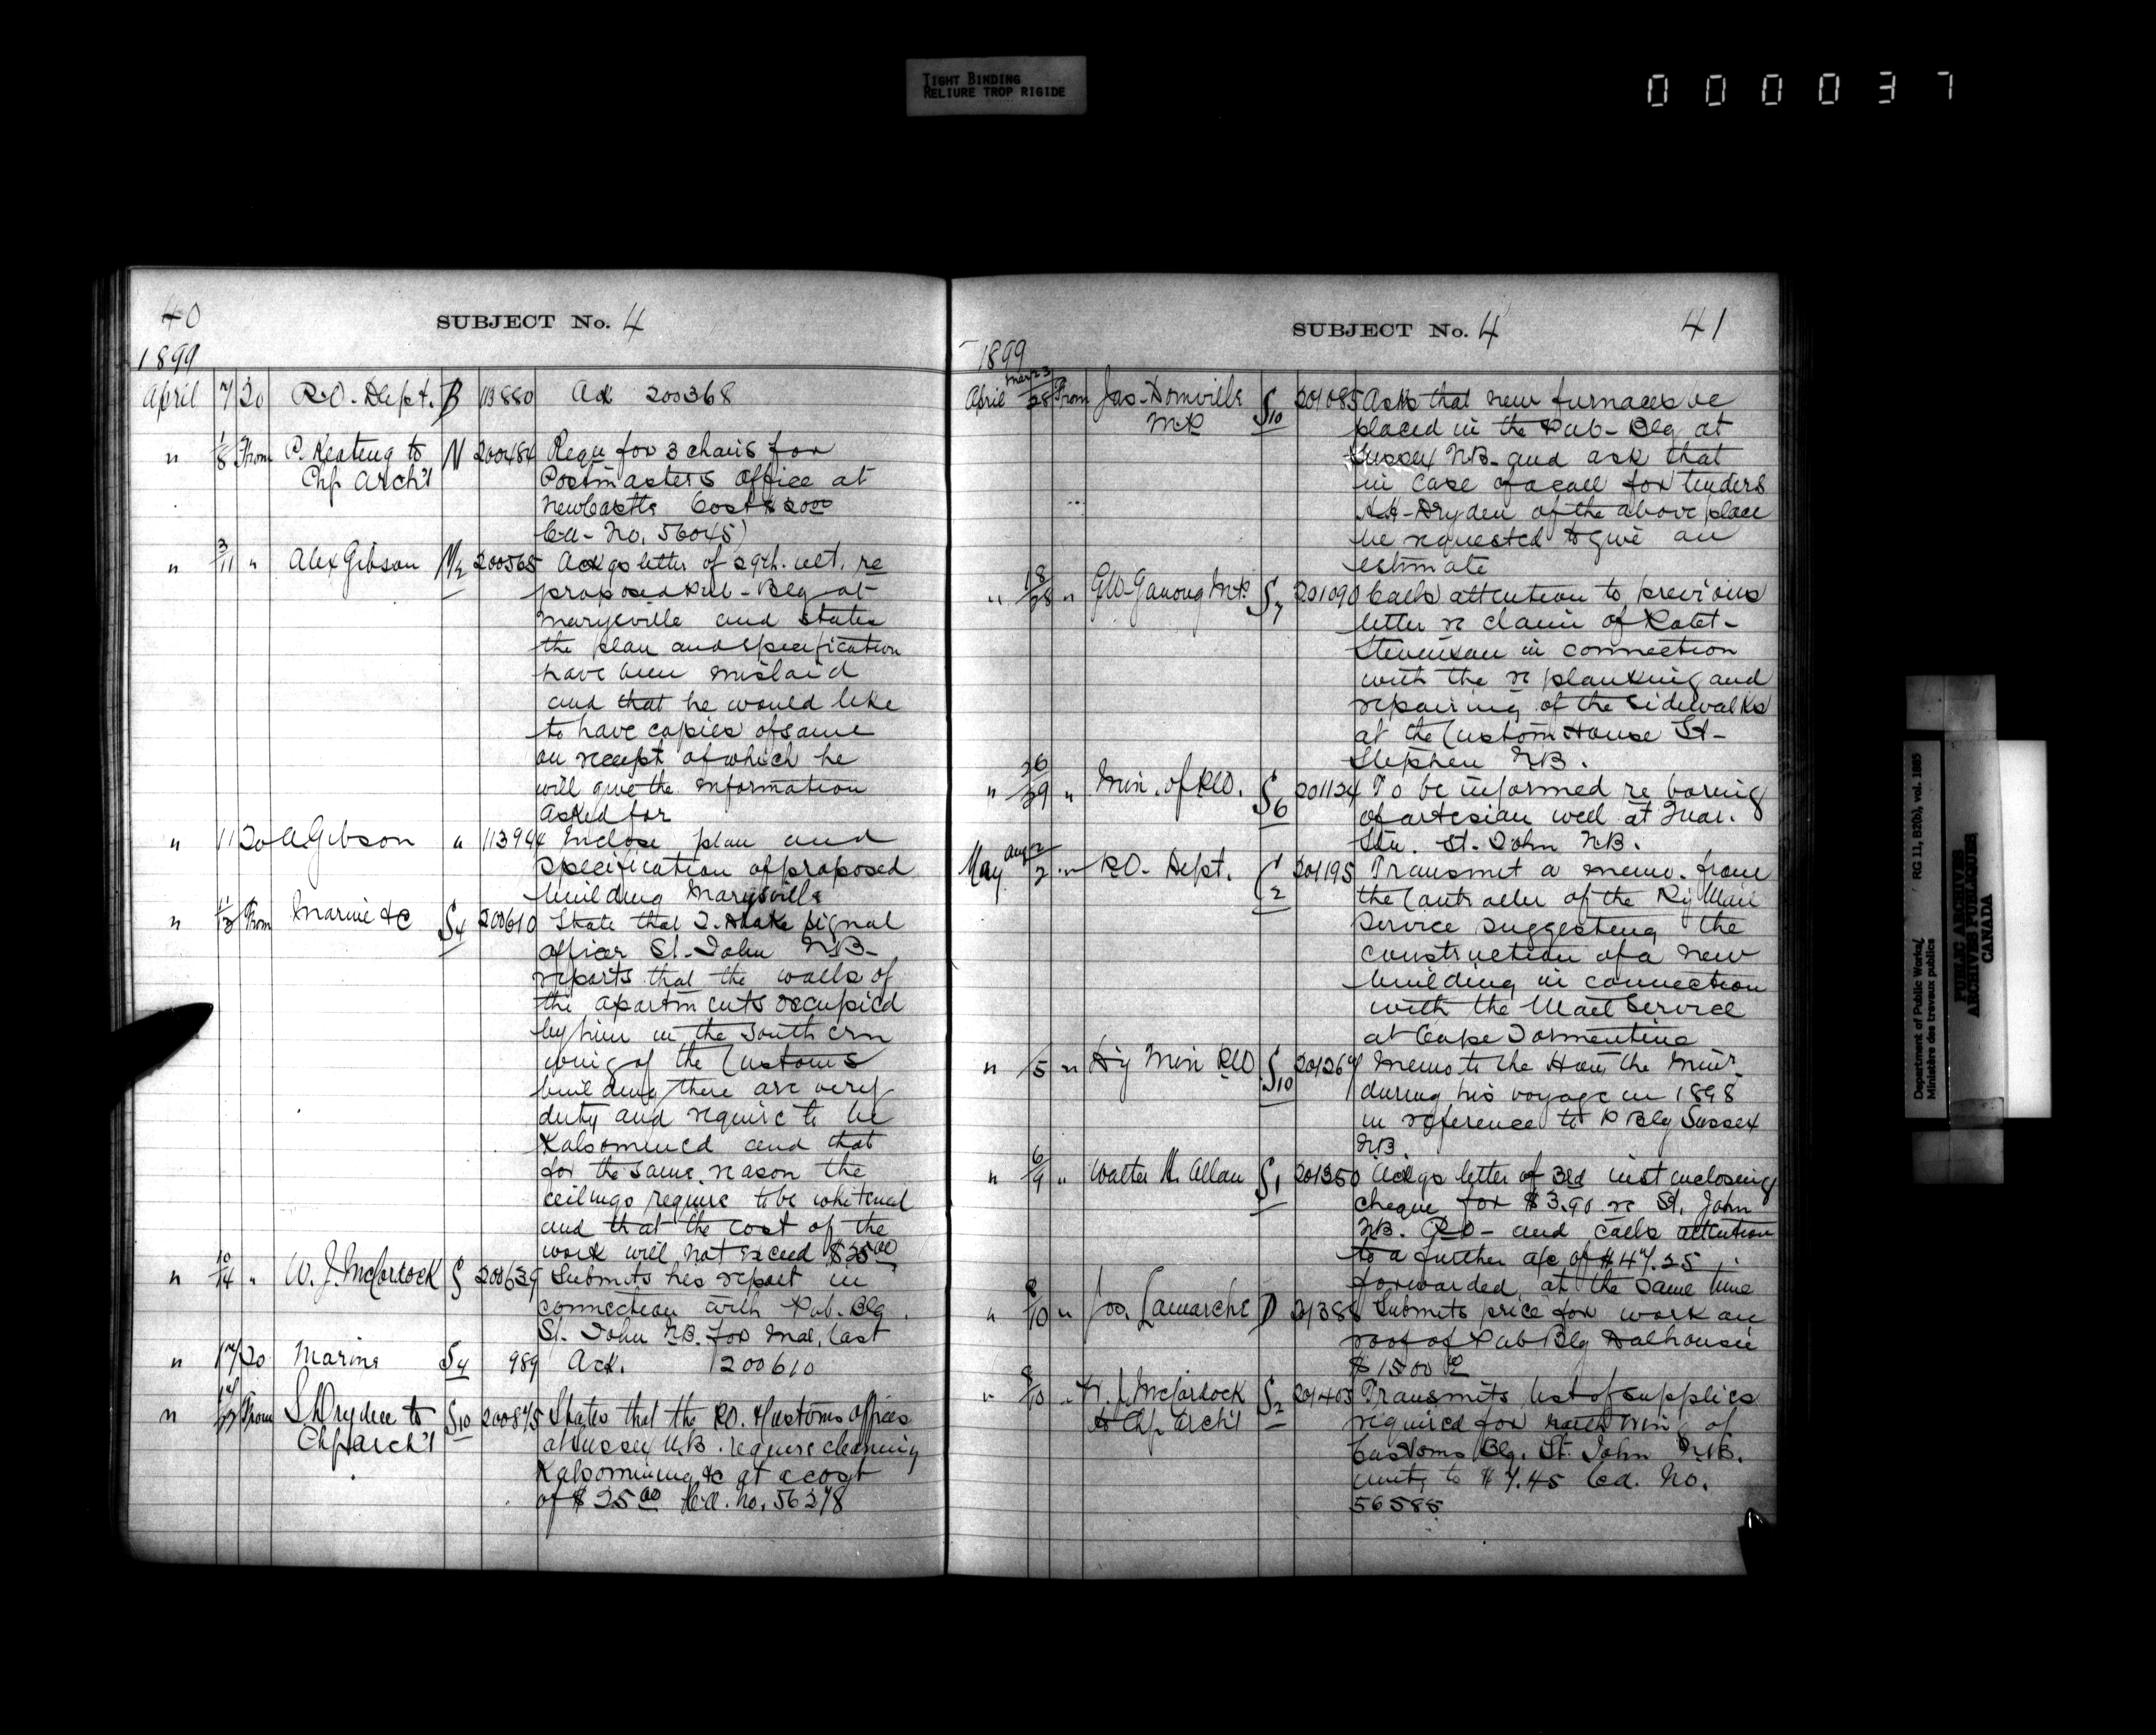 TIGHT BINDING
RELIURE TROP RIGIDE
000037
40
SUBJECT No. 4
1899
April 7 20 P.O. Dept. B 113880 Ack 200368
" 1/8 From P. Keating to N 200484 Requ for 3 chairs for
Chf Arch't Postmasters Office at
NewCastle Cost $2000
Ca- No. 56045)
" 3/11 " Alex Gibson M/2 200565 Ackgs letter of 29th. ult. re
proposed Pub- Blg at
Marysville and states
the plan and specification
have been mislaid
and that he would like
to have copies of same
on receipt of which he
will give the information
asked for
" 11 20 A Gibson " 113944 Inclose plan and
specification of proposed
building Marysville
" 11/13 From Marine &c S4 200610 State that I. Drake signal
officer St. John NB-
reports that the walls of
the apartments occupied
by him in the southern
wing of the Customs
building there are very
duty and require to be
Kalsomined and that
for the same reason the
ceilings require to be whitened
and that the cost of the
work will not exceed $2500
" 10/14 " W. J. McCordock S 200639 Submits his report in
connection with Pub. Blg
St. John NB. for Mar, last
" 17 20 Marine S4 989 Ack. 200610
" From S H Dryden to S10 200875 States that the P.O. & Customs offices
Chf Arch't at Sussex N.B. require cleaning
Kalsomining &c at a cost
of $25 00 Ca. No. 56278
SUBJECT No. 4
41
1899
April Mar 23/28 From Jas- Domville S10 201085 Asks that new furnaces be
MP placed in the Pub- Blg at
Sussex NB- and ask that
in case of a call for tenders
Dryden of the above place
be requested to give an
estimate
" 18/28 " G W Ganong MP S7 201090 Calls attention to previous
letter re claim of Robt-
Stevenson in connection
with the re planking and
repairing of the sidewalks
at the Custom House St-
Stephen NB.
" 26/29 " Min. of P.W. S6 201124 To be informed re boring
of artesian well at Quar.
Stn. St. John NB.
May Aug 2/2 " P.O. Dept. C2 201195 Transmit a memo. from
the Controller of the Ry Mail
Service suggesting the
construction of a new
building in connection
with the Mail Service
at Cape Tormentine
" /5 " Dy Min PW S10 201267 Memo to the Hon the Minr.
during his voyage in 1898
in reference to P Blg Sussex
NB.
" 6/9 " Walter H. Allan S1 201350 Ackgs letter of 3rd inst enclosing
cheque for $3.90 re St. John
NB. P.O- and calls attention
to a further a/c of $47.25
forwarded, at the same time
" 8/10 " Jos. Lamarche D 201388 Submits price for work on
roof of Pub Blg Dalhousie
$1500
" 8/10 " W. J. McCordock S2 201403 Transmits list of supplies
to Chf Arch't required for south wing of
Customs Blg. St. John NB.
amtg to $7.45 Ca. No.
56585
Department of Public Works/ RG 11, B2(b), vol. 1885
Ministère des travaux publics
PUBLIC ARCHIVES
ARCHIVES PUBLIQUES
CANADA